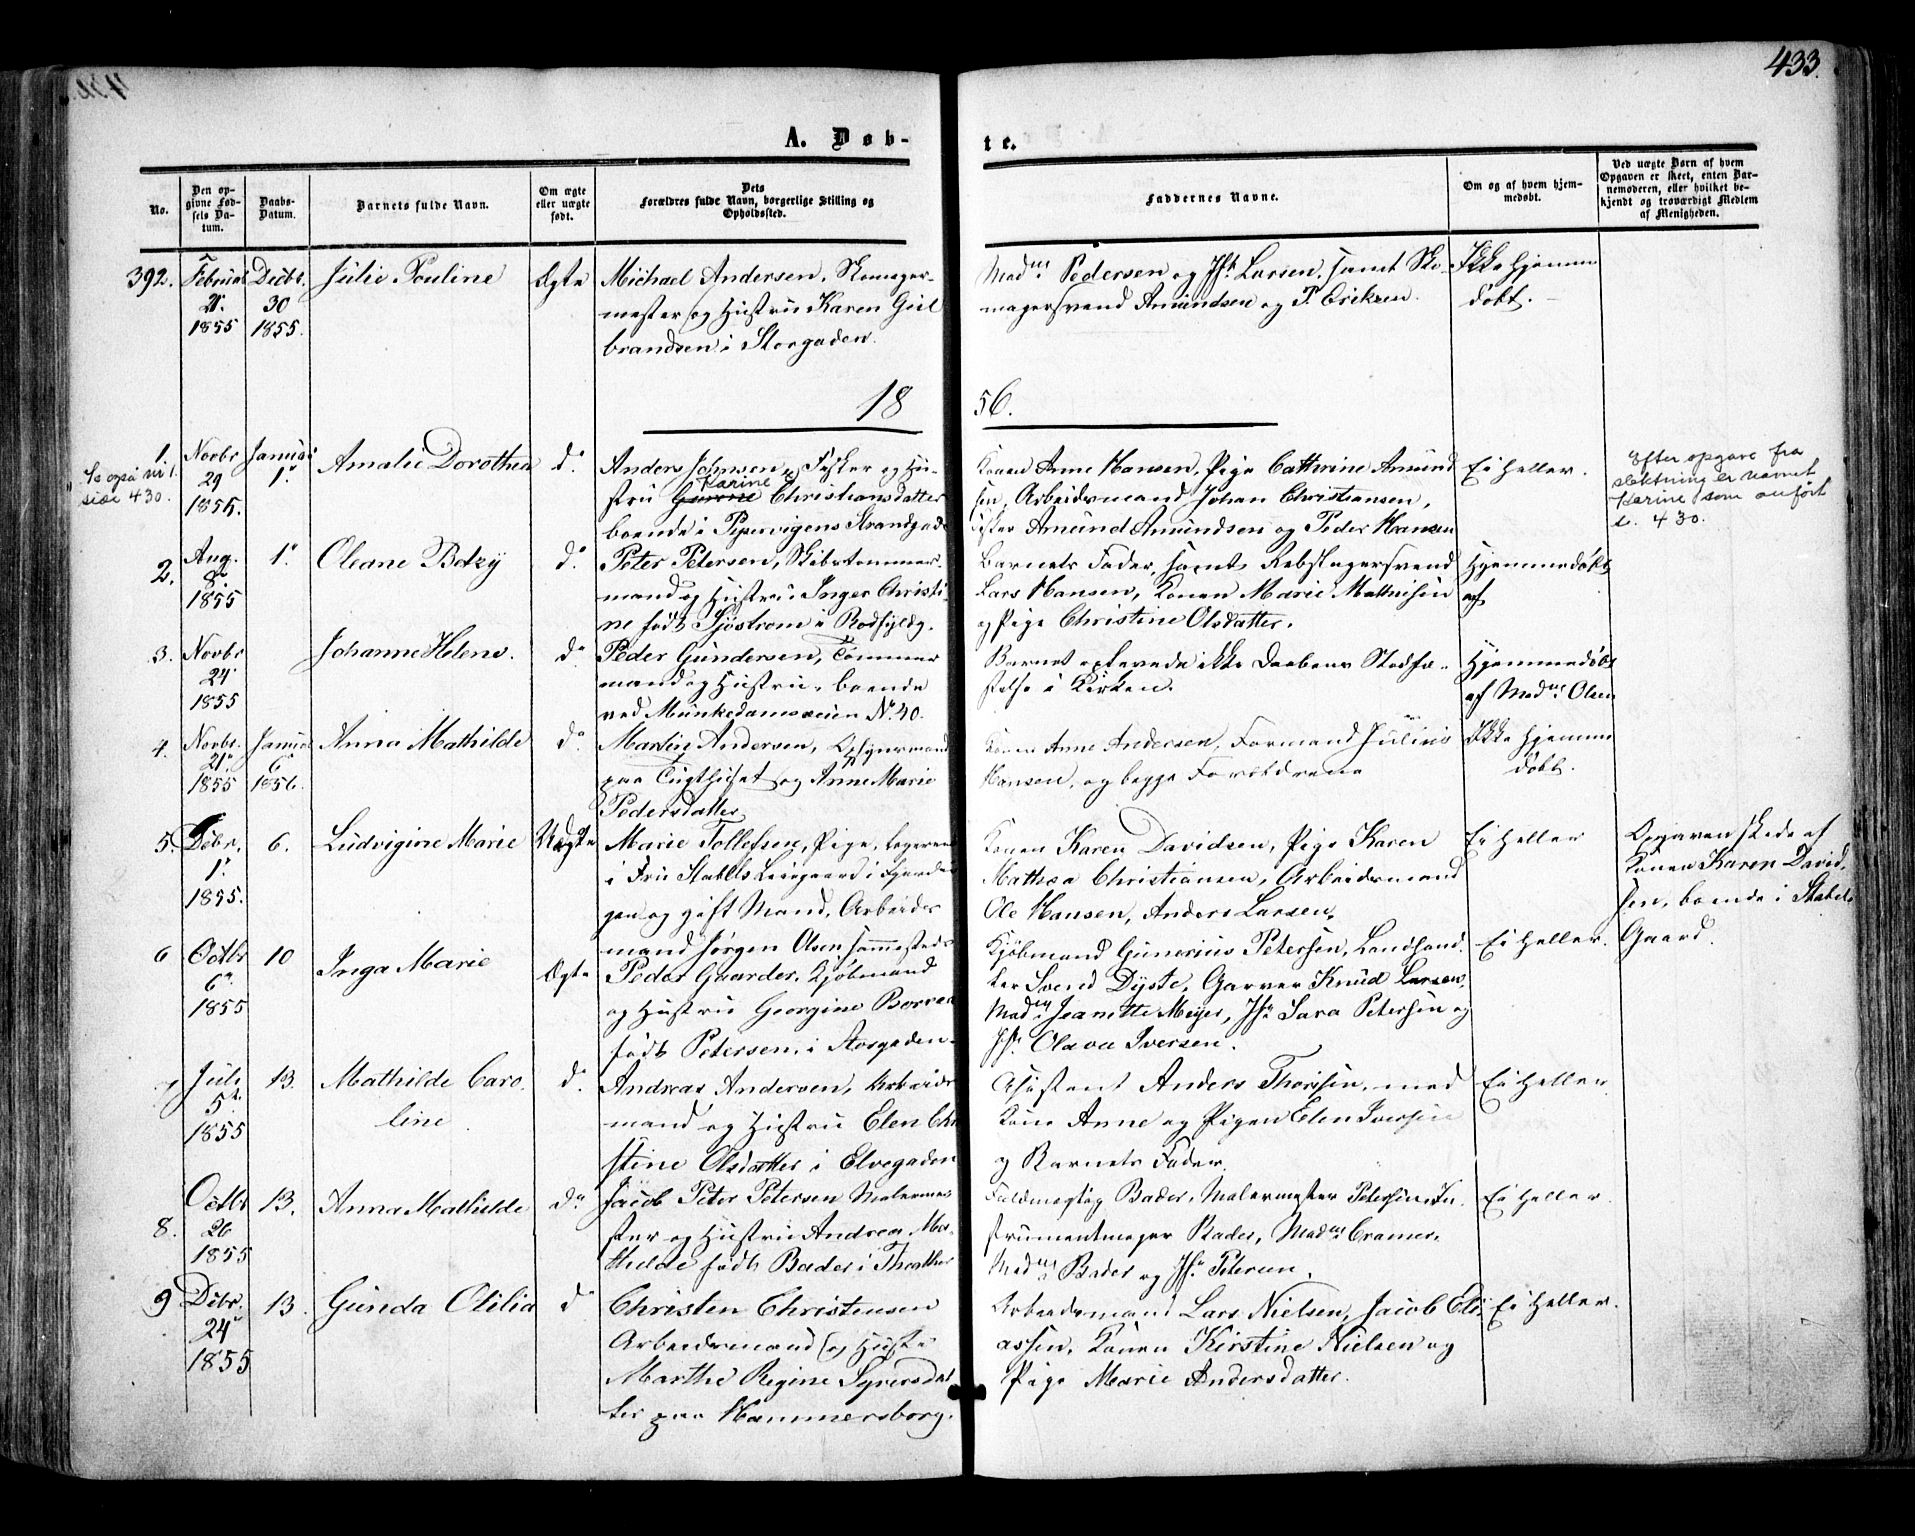 433.
A. Døb-
te.
No.
Den op-
givne Fød-
sels Da-
tum.
Daabs-
Datum.
Barnets fulde Navn.
Om ægte
eller uægte
født.
Dets
Forældres fulde Navn, borgerlige Stilling og
Opholdssted.
Faddernes Navne.
Om og af hvem hjem-
medøbt.
Ved uægte Børn af hvem
Opgaven er skeet, enten Bar-
nemoderen, eller hvilket be-
kjendt og troværdigt Medlem
af Menigheden.
392.
Februar
21.
1855
Decbr.
30
1855.
Julie Pouline
Ægte
Michael Andersen, Skomager-
mester og Hustru Karen Gul
brandsen i Storgaden.
Mad. Pedersen og Jfr. Larsen, samt Sko-
magersvend Amundsen og P. Eriksen.
Ikke Hjemme
døbt.
1856.
1.
Se også nr 1.
side 430.
Novbr
29
1855.
Januar
1.
Amalie Dorothea
do.
Anders Johnsen, Fisker og Hu-
Karine
stru Christiansdatter
boende i Pipervigens Strandgade
Konen Anne Hansen, Pige Cathrine Amund
sen, Arbeidsmand Johan Christiansen,
Fisker Amund Amundsen og Peder Hansen
Ei heller.
Efter opgave fra
slektning er navnet
Karine som anført
s. 430.
2.
Aug.
8.
1855
1.
Oleane Betzy
do.
Peter Petersen, Skibstømmer-
mand og Hustru Inger Christi-
ne født Sjøstrøm i
Barnets Fader, samt Rebslagersvend
Lars Hansen, Konen Marie Mathisen
og Pige Christine Olsdatter.
Hjemmedøbt
af
3.
Novbr
24
1855
Johanne Helene.
do.
Peder Gundersen, Tømmer
mand og Hustru, boende
ved Munkedamsveien No. 40.
Barnet oplevede ikke Daabens Stadfæ-
stelse i Kirken.
Hjemmedøbt
af Mad. Olsen
4.
Novbr.
21.
1855
Januar
6.
1856.
Anna Mathilde
do.
Martin Andersen, Opsynsmand
paa Tugthuset og Anne Marie
Pedersdatter
Konen Anne Andersen, Formand Julius
Hansen, og begge Forældrene
Ikke Hjemme
døbt.
5.
Debr.
1.
1855.
6.
Ludvigine Marie
Uægte
Marie Tollefsen, Pige, logerende
i Fru Stabells Leiegaard i Fjerdin-
gen og gift Mand, Arbeids-
mand Jørgen Olsen sammesteds
Konen Karen Davidsen, Pige Karen
Mathea Christiansen, Arbeidsmand
Ole Hansen, Anders Larsen.
Ei Heller
Opgaven skede af
Konen Karen David-
sen, boende i Stabels
Gaard.
6
Octbr
6.
1855
10
Inga Marie
Ægte
Peder Gaarder, Kjøbmand
og Hustru Georgine
født Petersen, i Storgaden.
Kjøbmand Gunerius Petersen, Landhand-
ler Svend Dyste, Garver Knud Larsen,
Mad. Jeanette Meyer, Jfr. Sara Petersen og
Jfr. Olava Iversen.
Ei Heller.
7
Juli
5.
1855
13.
Mathilde Caro-
line
do.
Andreas Andersen, Arbeids-
mand og Hustru Elen Chri
stine Olsdatter i Elvegaden
Assistent Anders Thoresen, med
Kone Anne og Pigen Elen Iversen
og Barnets Fader.
Ei Heller
8.
Octbr
26
1855
13.
Anna Mathilde
do.
Jacob Peter Petersen Malerme-
ster og Hustru Andrea Ma-
thilde født Bader i Theather
Fuldmegtig Bader, Malermester Petersen, In-
strumentmager Bader, Mad. Cramer,
Mad. Bader og Jfr. Petersen.
Ei Heller.
9
Debr.
24
1855
13.
Gunda Otilia
do
Christen Christensen
Arbeidsmand og Hustru
Marthe Regine Syversdat
ter paa Hammersborg.
Arbeidsmand Lars Nielsen, Jacob Eli-
assen, Konen Kirstine Nielsen og
Pige Marie Andersdatter.
Ei Heller.